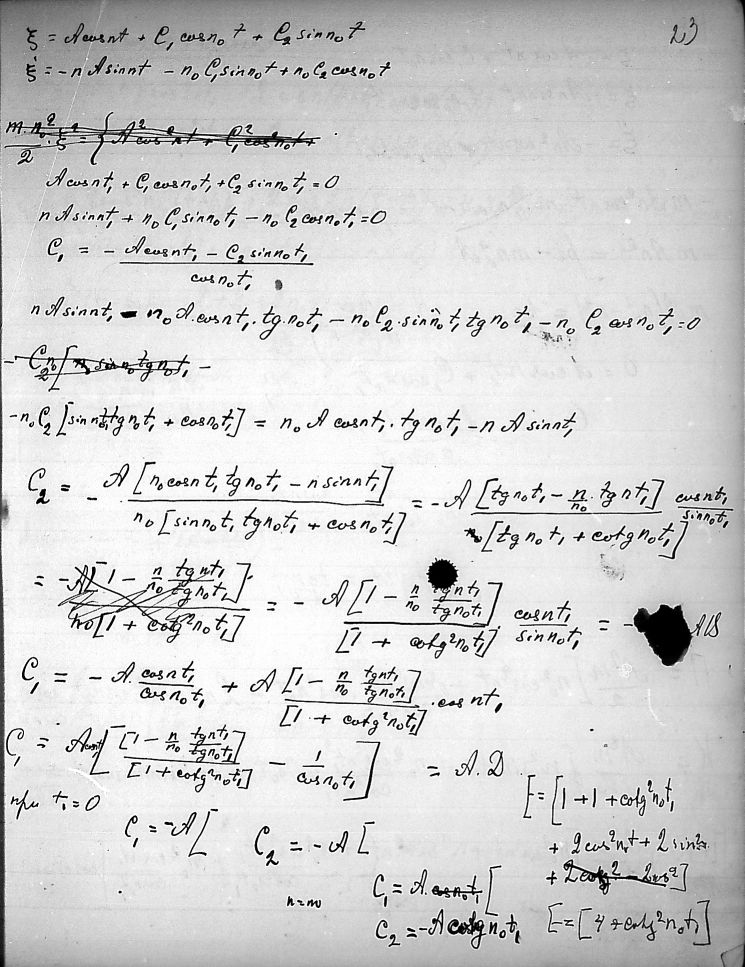 23
ξ = A cos nt + C₁ cos n₀t + C₂ sin n₀t
ξ̇ = -n A sin nt - n₀ C₁ sin n₀t + n₀ C₂ cos n₀t
A cos nt₁ + C₁ cos n₀t₁ + C₂ sin n₀t₁ = 0
n A sin nt₁ + n₀ C₁ sin n₀t₁ - n₀ C₂ cos n₀t₁ = 0
C₁ = - (A cos nt₁ - C₂ sin n₀t₁) / cos n₀t₁
n A sin nt₁ - n₀ A cos nt₁ . tg n₀t₁ - n₀ C₂ . sin n₀t₁ tg n₀t₁ - n₀ C₂ cos n₀t₁ = 0
-n₀ C₂ [sin n₀t₁ tg n₀t₁ + cos n₀t₁] = n₀ A cos nt₁ . tg n₀t₁ - n A sin nt₁
C₂ = - A [n₀ cos nt₁ tg n₀t₁ - n sin nt₁] / n₀ [sin n₀t₁ tg n₀t₁ + cos n₀t₁] = - A [tg n₀t₁ - n/n₀ . tg nt₁] / [tg n₀t₁ + cotg n₀t₁] cos nt₁ / sin n₀t₁
= - A [1 - n/n₀ tg nt₁/tg n₀t₁] / n₀ [1 + cotg² n₀t₁] = - A [1 - n/n₀ tg nt₁/tg n₀t₁] / [1 + cotg² n₀t₁] . cos nt₁ / sin n₀t₁ = - AB
C₁ = - A . cos nt₁ / cos n₀t₁ + A [1 - n/n₀ tg nt₁/tg n₀t₁] / [1 + cotg² n₀t₁] . cos nt₁
C₁ = A cos nt₁ [ [1 - n/n₀ tg nt₁/tg n₀t₁] / [1 + cotg² n₀t₁] - 1 / cos n₀t₁ ] = A . D
при t₁ = 0
[ = [1 + 1 + cotg² n₀t₁
C₁ = -A [ C₂ = -A [
+ 2 cos² n₀t + 2 sin²
n = n₀
C₁ = A . cos n₀t₁ [
C₂ = -A cotg n₀t₁
[ = [4 + cotg² n₀t₁]